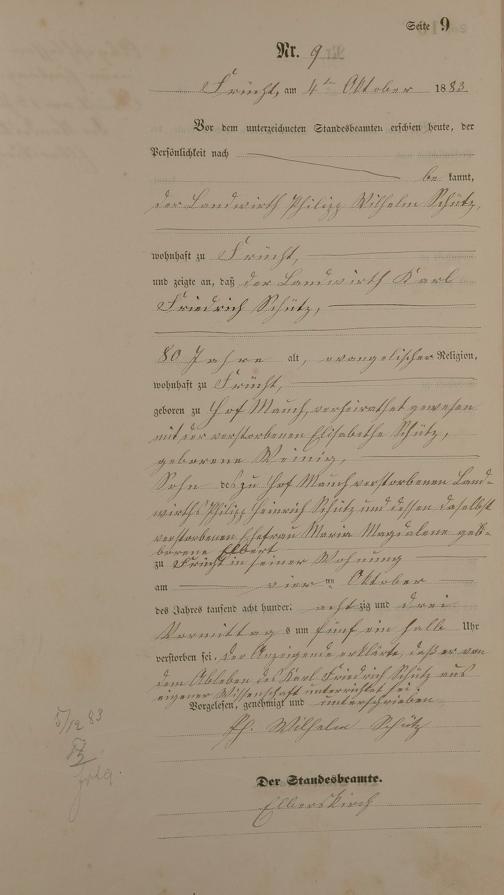 Seite 9
Nr. 9
Frücht, am 4ten Oktober 1883.
Vor dem unterzeichneten Standesbeamten erschien heute, der
Persönlichkeit nach
be kannt,
der Landwirth Philipp Wilhelm Schütz,
wohnhaft zu Frücht,
und zeigte an, daß der Landwirth Karl
Friedrich Schütz,
80 Jahre alt, evangelischer Religion,
wohnhaft zu Frücht,
geboren zu Hof Mauch, verheirathet gewesen
mit der verstorbenen Elisabethe Schütz,
geborene Weinig,
Sohn des zu Hof Mauch verstorbenen Land-
wirths Philipp Heinrich Schütz und dessen daselbst
verstorbenen Ehefrau Maria Magdalene geb-
borene Elbert
zu Frücht in seiner Wohnung
am vierten Oktober
des Jahres tausend acht hundert achtzig und drei
Vormittags um fünf ein halb Uhr
verstorben sei. Der Anzeigende erklärte, daß er von
dem Ableben des Karl Friedrich Schütz aus
eigener Wissenschaft unterrichtet sei.
Vorgelesen, genehmigt und unterschrieben
Ph. Wilhelm Schütz
Der Standesbeamte.
Elberskirch
5/12 83